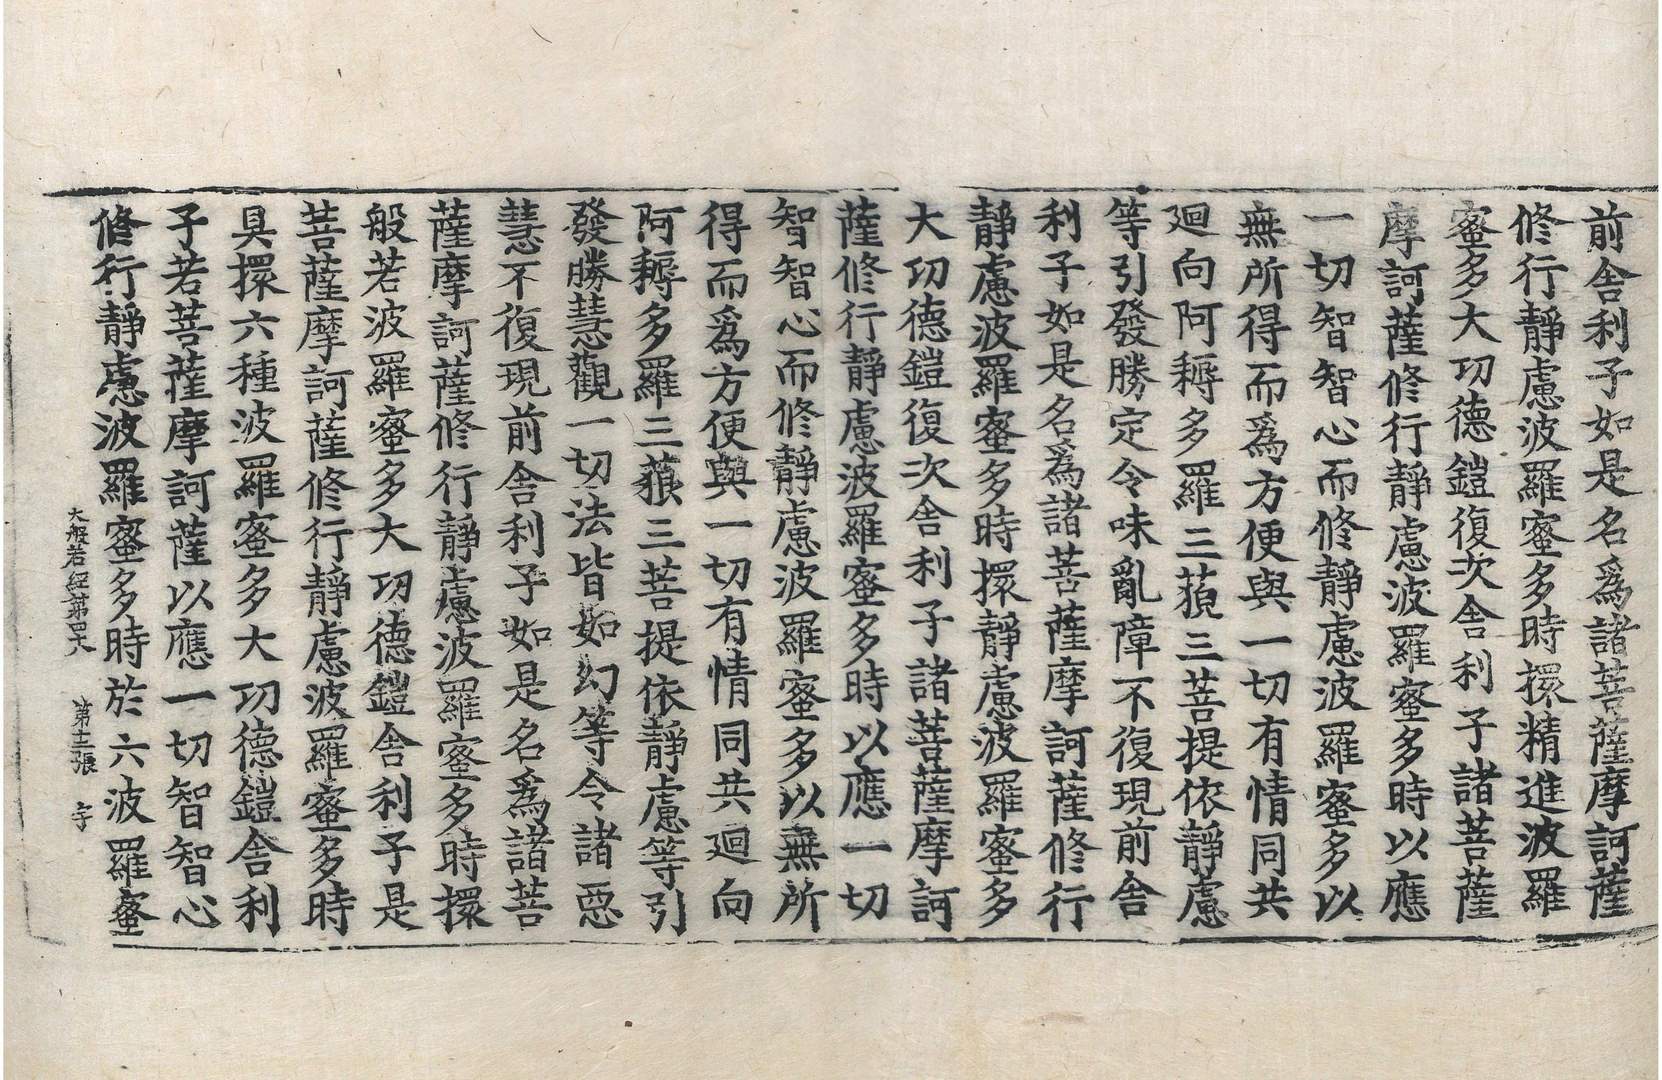 前舍利子如是名爲諸菩薩摩訶薩
修行靜慮波羅蜜多時擐精進波羅
蜜多大功德鎧復次舍利子諸菩薩
摩訶薩修行靜慮波羅蜜多時以應
一切智智心而修靜慮波羅蜜多以
無所得而爲方便與一切有情同共
廻向阿耨多羅三藐三菩提依靜慮
等引發勝定令味亂障不復現前舍
利子如是名爲諸菩薩摩訶薩修行
靜慮波羅蜜多時擐靜慮波羅蜜多
大功德鎧復次舍利子諸菩薩摩訶
薩修行靜慮波羅蜜多時以應一切
智智心而修靜慮波羅蜜多以無所
得而爲方便與一切有情同共廻向
阿耨多羅三藐三菩提依靜慮等引
發勝慧觀一切法皆如幻等令諸惡
慧不復現前舍利子如是名爲諸菩
薩摩訶薩修行靜慮波羅蜜多時擐
般若波羅蜜多大功德鎧舍利子是
菩薩摩訶薩修行靜慮波羅蜜多時
具擐六種波羅蜜多大功德鎧舍利
子若菩薩摩訶薩以應一切智智心
修行靜慮波羅蜜多時於六波羅蜜
大般若經第四十八 第十二張 宇